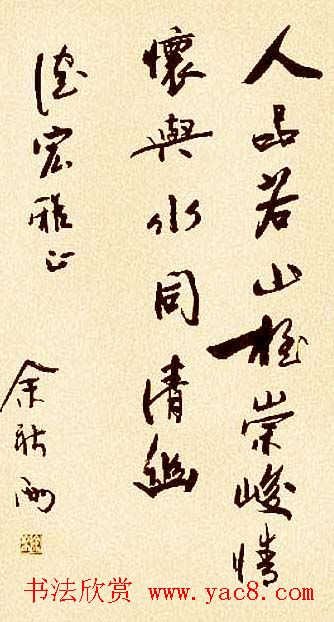 人品若山極崇峻情
懷與水同清幽
宏雅正
余秋雨
书法欣赏 www.yac8.com